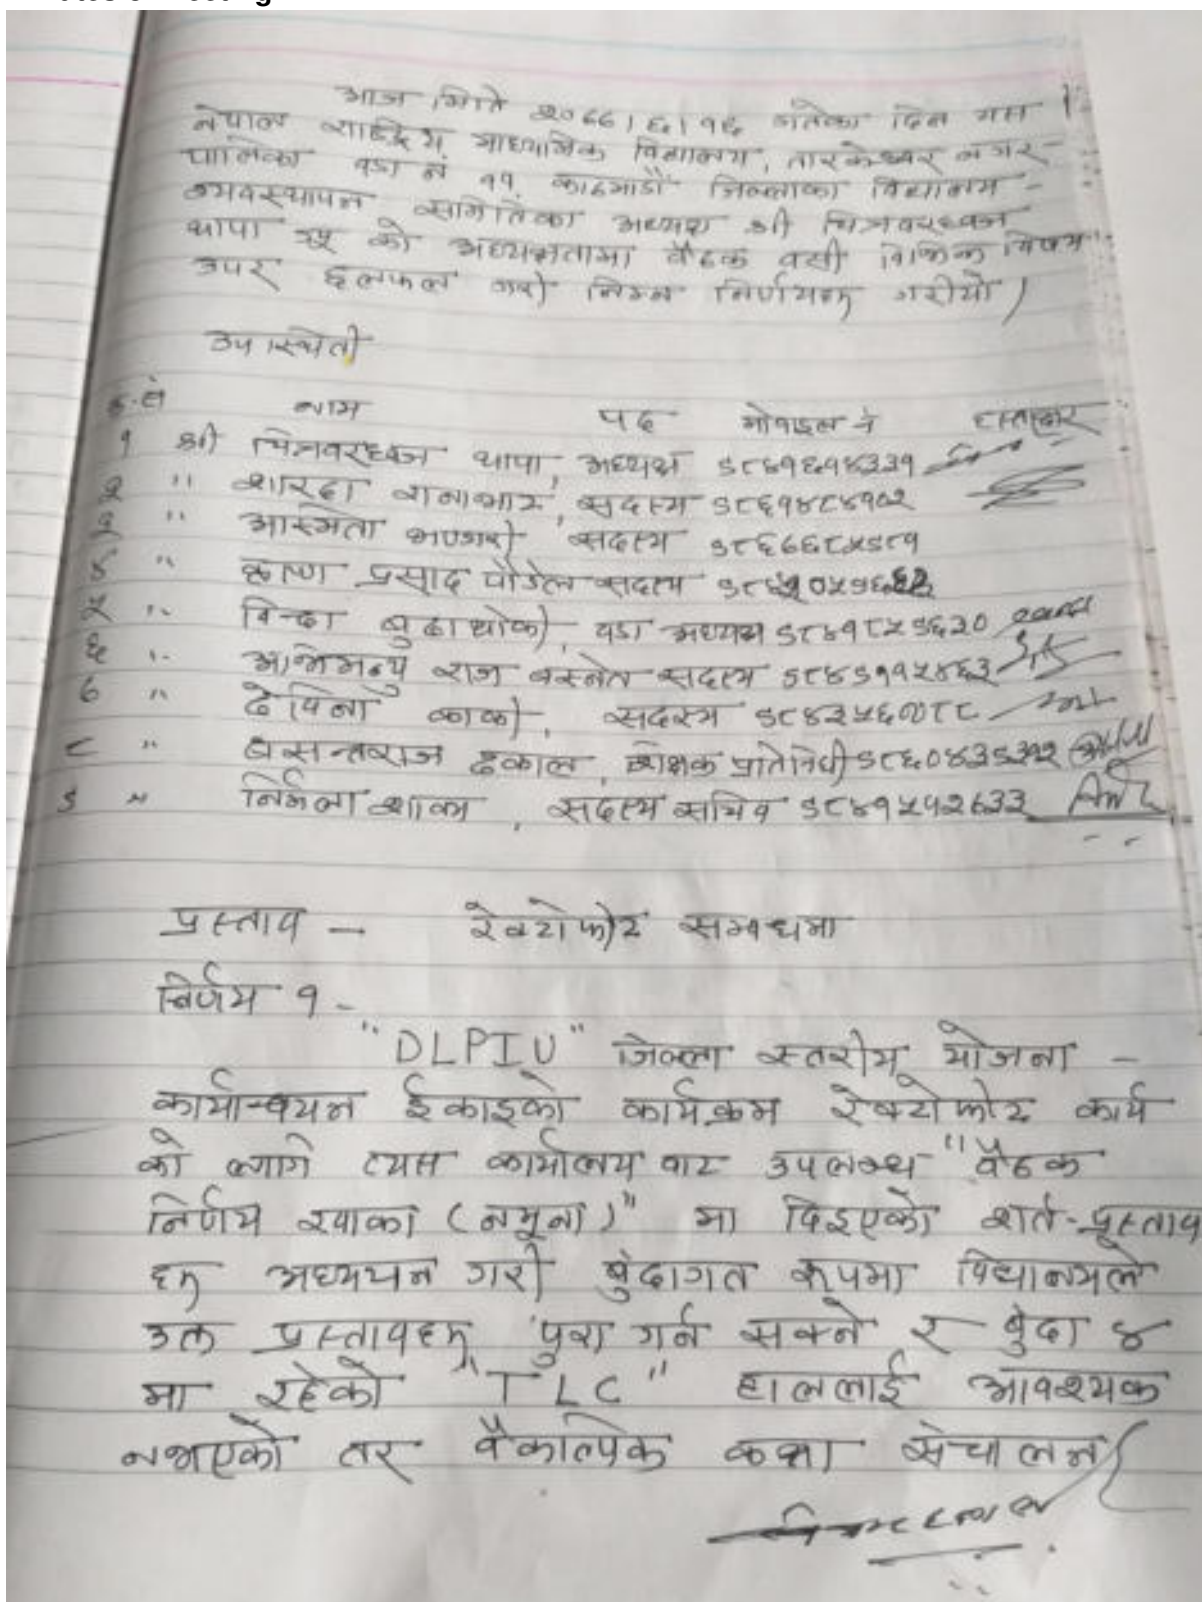 आज मिति २०७७।६।१६ गतेका दिन यस
नेपाल राष्ट्रिय माध्यमिक विद्यालय, तारकेश्वर नगर-
पालिका वडा नं ११ काठमाडौं जिल्लाका विद्यालय
व्यवस्थापन समितिका अध्यक्ष श्री चित्रवरध्वज
थापा ज्यू को अध्यक्षतामा बैठक वसी विभिन्न विषय
उपर छलफल गरी निम्न निर्णयहरू गरीयो।
उपस्थिती
क्र.सं नाम पद मोबाइल नं हस्ताक्षर
१ श्री चित्रवरध्वज थापा, अध्यक्ष ९८४१६१४३३१
२ " शारदा मानाभाट, सदस्य ९८६१४८४१०२
३ " अस्मिता भण्डारी सदस्य ९८६७६८५९८१
४ " कृष्ण प्रसाद पौडेल सदस्य
५ " विन्दा बुढाथोकी, वडा अध्यक्ष ९८४१८५९६२०
६ " अभिमन्यु राज बस्नेत सदस्य ९८४९११५४६३
७ " देविना कार्की, सदस्य
८ " बसन्तराज ढकाल, शिक्षक प्रतिनिधी ९८६०४३९३१२
९ " निर्मला शाक्य, सदस्य सचिव ९८४१५१२७३३
प्रस्ताव - रेक्टोफोट सम्बधमा
निर्णय १-
"DLPIU" जिल्ला स्तरीय योजना -
कार्यान्वयन ईकाइको कार्यक्रम रेक्टोफोट कार्य
को लागि त्यस कार्यालय वाट उपलब्ध "बैठक
निर्णय खाका (नमूना)" मा दिइएको शर्त-प्रस्ताव
हरू अध्ययन गरी बुंदागत रूपमा विद्यालयले
उक्त प्रस्तावहरू पुरा गर्न सक्ने र बुंदा ४
मा रहेको "TLC" हाललाई आवश्यक
नभएको तर वैकल्पिक कक्षा संचालन